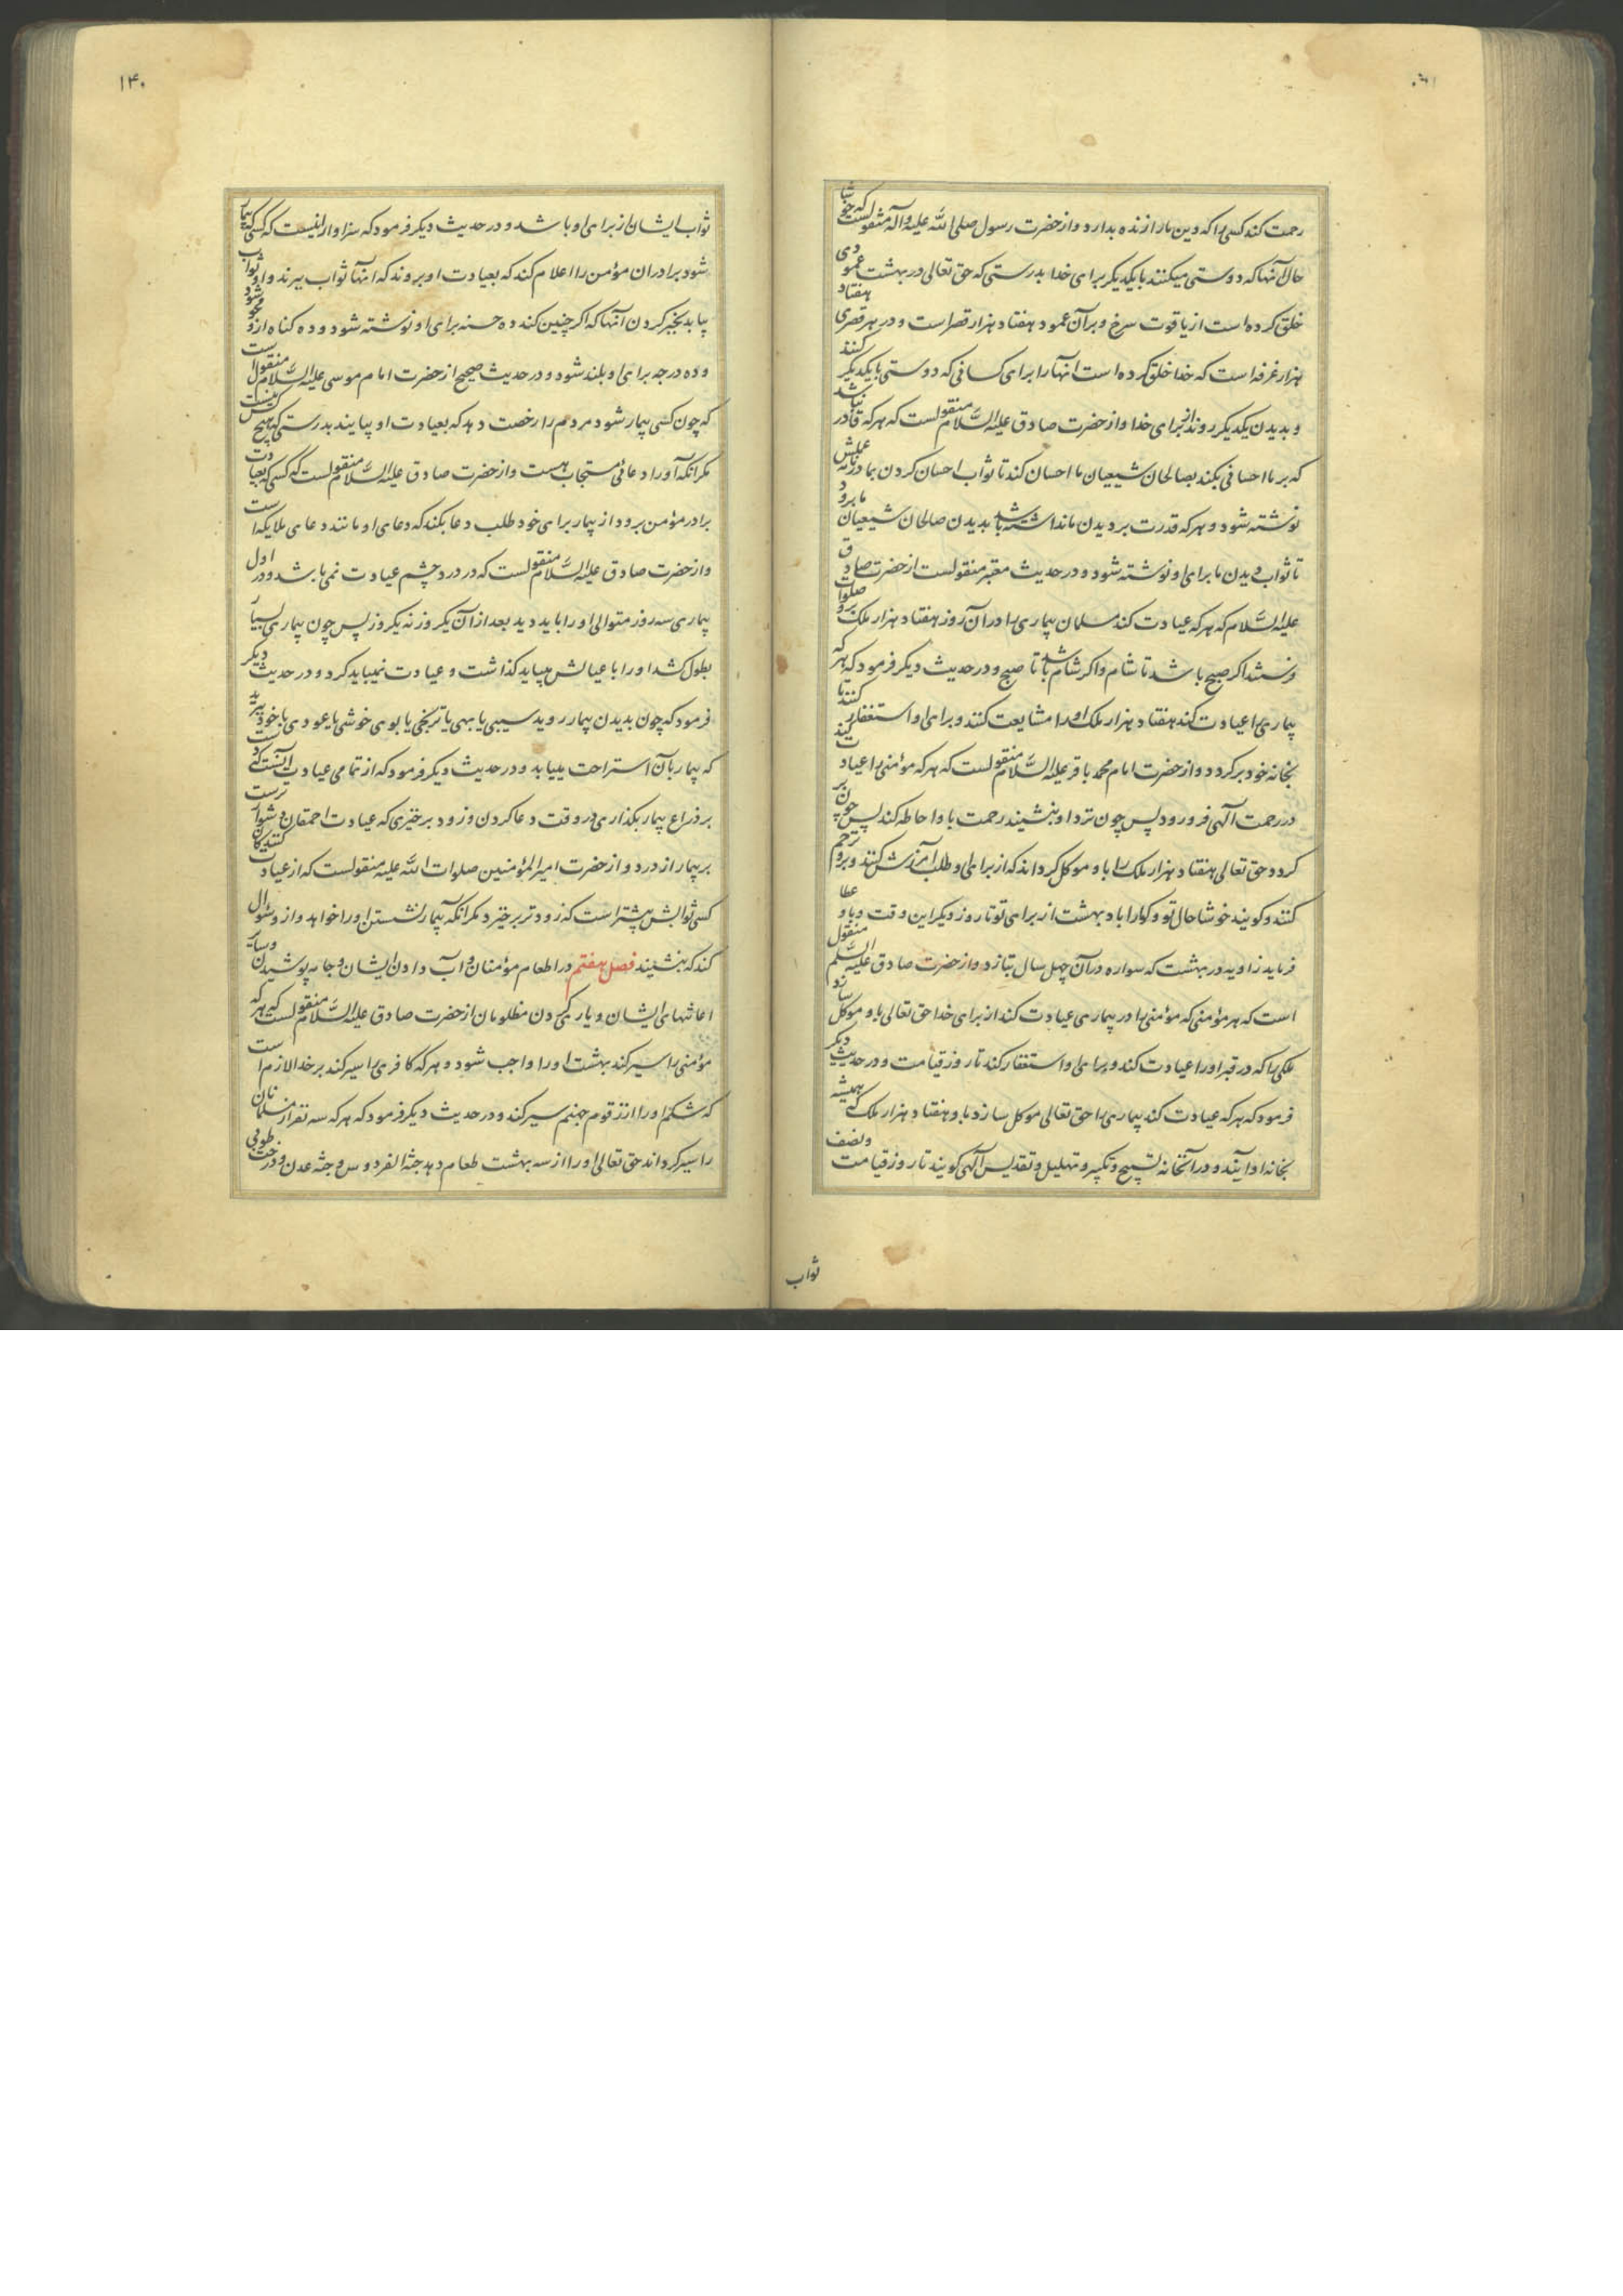 رحمت کند کسی را که دین ما را زنده بدارد و از حضرت رسول صلی الله علیه و آله منقولست که خوشا
حال آنها که دوستی میکنند با یکدیگر برای خدا بدرستی که حق تعالی در بهشت عمودی
خلق کرده است از یاقوت سرخ و بر آن عمود هفتاد هزار قصر است و در هر قصری هفتاد
هزار غرفه است که خدا خلق کرده است آنها را برای کسانی که دوستی با یکدیگر کنند
و بدیدن یکدیگر روند از برای خدا و از حضرت صادق علیه السلام منقولست که هر که قادر نباشد
که بر ما احسانی بکند بصالحان شیعیان ما احسان کند تا ثواب احسان کردن بما در نامه عملش
نوشته شود و هر که قدرت بر دیدن ما نداشته باشد بدیدن صالحان شیعیان ما برود
تا ثواب دیدن ما برای او نوشته شود و در حدیث معتبر منقولست از حضرت صادق
علیه السلام که هر که عیادت کند مسلمان بیماری را در آن روز هفتاد هزار ملک برو صلوات
فرستند اگر صبح باشد تا شام و اگر شام باشد تا صبح و در حدیث دیگر فرمود که هر که
بیماری را عیادت کند هفتاد هزار ملک او را مشایعت کنند و برای او استغفار کنند تا
بخانه خود برگردد و از حضرت امام محمد باقر علیه السلام منقولست که هر که مؤمنی را عیادت کند
در رحمت الهی فرو رود پس چون نزد او بنشیند رحمت باو احاطه کند پس چون بر
گردد حق تعالی هفتاد هزار ملک را باو موکل گرداند که از برای او طلب آمرزش کنند و برو ترحم
کنند و گویند خوشا حال تو و گوارا باد بهشت از برای تو تا روز دیگر این وقت و باو عطا
فرماید زاویه در بهشت که سواره در آن چهل سال بتازد و از حضرت صادق علیه السلام منقول
است که هر مؤمنی که مؤمنی را در بیماری عیادت کند از برای خدا حق تعالی باو موکل سازد
ملکی را که در قبر او را عیادت کند و برای او استغفار کند تا روز قیامت و در حدیث دیگر
فرمود که هر که عیادت کند بیماری را حق تعالی موکل سازد باو هفتاد هزار ملک که همیشه
بخانه او آیند و در آنخانه تسبیح و تکبیر و تهلیل و تقدیس الهی گویند تا روز قیامت و نصف
ثواب
۱۴۰
ثواب ایشان از برای او باشد و در حدیث دیگر فرمود که سزاوار اینست که کسی که بیمار
شود برادران مؤمن را اعلام کند که بعیادت او بروند که آنها ثواب ببرند و او ثواب
بیابد بخبر کردن آنها که اگر چنین کند ده حسنه برای او نوشته شود و ده گناه ازو محو شود
و ده درجه برای او بلند شود و در حدیث صحیح از حضرت امام موسی علیه السلام منقول است
که چون کسی بیمار شود مردم را رخصت دهد که بعیادت او بیایند بدرستی که هیچ کس نیست
مگر آنکه او را دعائی مستجاب هست و از حضرت صادق علیه السلام منقولست که کسی که بعیادت
برادر مؤمن برود از بیمار برای خود طلب دعا بکند که دعای او مانند دعای ملایکه است
و از حضرت صادق علیه السلام منقولست که در درد چشم عیادت نمی باشد و در اول
بیماری سه روز متوالی او را باید دید بعد از آن یکروز نه یکروز پس چون بیماری بسیار
بطول کشد او را با عیالش میباید گذاشت و عیادت نمیباید کرد و در حدیث دیگر
فرمود که چون بدیدن بیمار روید سیبی یا بهی یا ترنجی یا بوی خوشی یا عودی با خود ببرید
که بیمار بآن استراحت مییابد و در حدیث دیگر فرمود که از تمامی عیادت آنست که دست
بر ذراع بیمار بگذاری در وقت دعا کردن و زود برخیزی که عیادت احمقان دشوارترست
بر بیمار از درد و از حضرت امیر المؤمنین صلوات الله علیه منقولست که از عیادت کنندگان
کسی ثوابش بیشتر است که زودتر برخیزد مگر آنکه بیمار نشستن او را خواهد و ازو سؤال
کند که بنشیند فصل هفتم در اطعام مؤمنان و آب دادن ایشان و جامه پوشیدن و سایر
اعانتهای ایشان و یاری کردن مظلومان از حضرت صادق علیه السلام منقولست که هر که
مؤمنی را سیر کند بهشت او را واجب شود و هر که کافری را سیر کند بر خدا لازم است
که شکم او را از زقوم جهنم سیر کند و در حدیث دیگر فرمود که هر که سه نفر از مسلمانان
را سیر گرداند حق تعالی او را از سه بهشت طعام دهد جنة الفردوس و جنة عدن و درخت طوبی